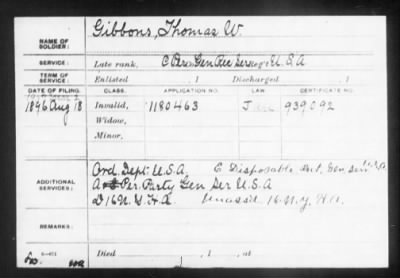 NAME OF SOLDIER: Gibbons, Thomas W.
SERVICE: Late rank, C Gen Ser U.S.A
TERM OF SERVICE: Enlisted , 1 Discharged , 1
DATE OF FILING. CLASS. APPLICATION NO. LAW. CERTIFICATE NO.
1896 Aug 18 Invalid, 1180463 J 939092
Widow,
Minor,
ADDITIONAL SERVICES: Ord. Dept. U.S.A. E Disposable Det. Gen. Ser U.S.A
Per. Party Gen Ser U.S.A
D 16 N.Y. H.A Unass'd. 16 N.Y. H.A.
REMARKS:
Died , 1 , at